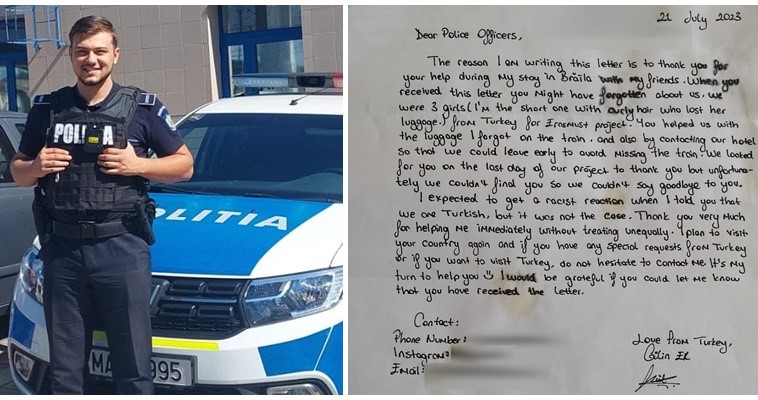 POLIȚIA
POLITIA
MAI 995
21 July 2023
Dear Police Officers,
The reason I am writing this letter is to thank you for
your help during my stay in Brăila with my friends. When you
received this letter you might have forgotten about us. We
were 3 girls (I'm the short one with curly hair who lost her
luggage) from Turkey for Erasmus+ project. You helped us with
the luggage I forgot on the train, and also by contacting our hotel
so that we could leave early to avoid missing the train. We looked
for you on the last day of our project to thank you but unfortuna-
tely we couldn't find you so we couldn't say goodbye to you.
I expected to get a racist reaction when I told you that
we are Turkish, but it was not the case. Thank you very much
for helping me immediately without treating unequally. I plan to visit
your country again and if you have any special requests from Turkey
or if you want to visit Turkey, do not hesitate to contact me. It's my
turn to help you I would be grateful if you could let me know
that you have received the letter.
Contact:
Phone Number:
Instagram:
Email:
Love from Turkey,